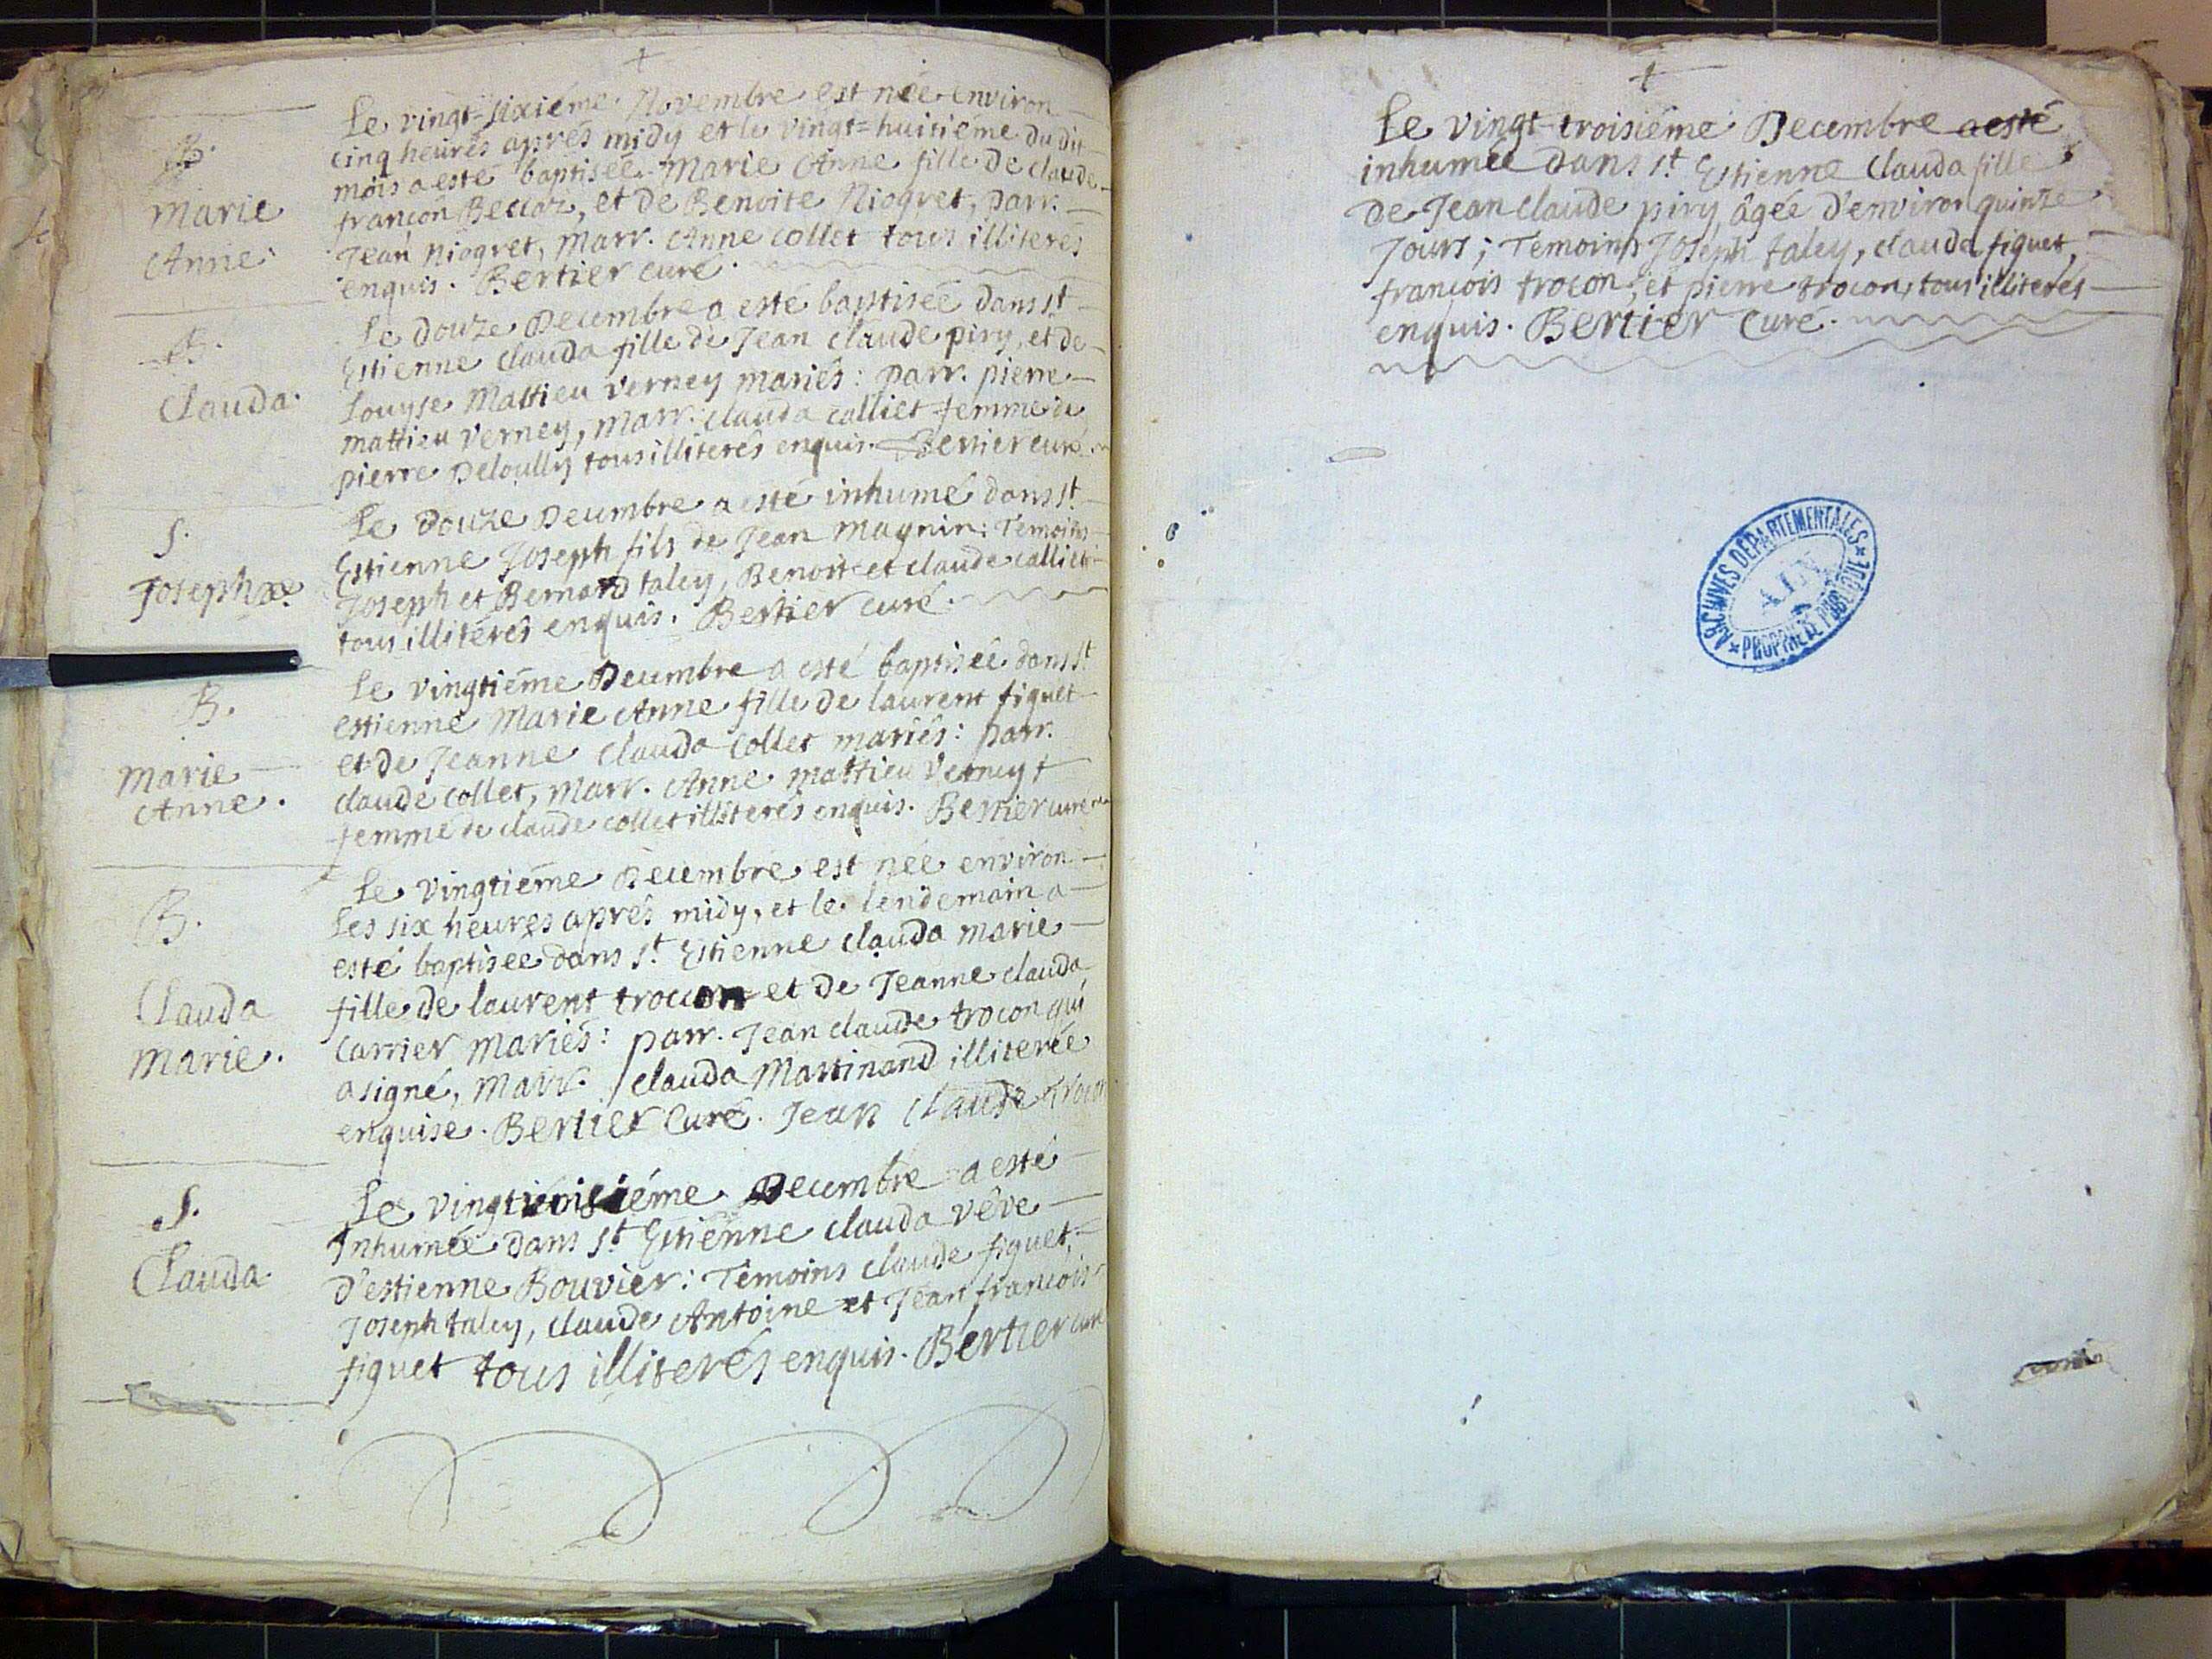 B.
Marie
Anne
Le vingt-sixiéme Novembre est née environ
cinq heures aprés midy et le vingt=huitiéme du dit
mois a esté baptisée Marie Anne fille de claude
françon Beccaz, et de Benoite Niogret, parr.
Jean Niogret, Marr. Anne collet tous illiterés
enquis. Bertier curé.
B.
Clauda.
Le douze Decembre a esté baptisée dans st
Estienne Clauda fille de Jean claude piry, et de
Louyse Mattieu verney mariés: parr. pierre
mattieu verney, Marr. clauda calliet femme de
pierre Deloully tous illiterés enquis. Bertier curé.
S.
Joseph
Le douze Decembre a esté inhumé dans st
Estienne Joseph fils de Jean Magnin: Temoins
Joseph et Bernard taley, Benoit et claude calliet
tous illiterés enquis. Bertier curé.
B.
Marie
Anne.
Le vingtiéme Decembre a esté baptisée dans st
estienne Marie Anne fille de laurent figuet
et de Jeanne Clauda Collet mariés: parr.
claude collet, Marr. Anne mattieu Verney
femme de claude collet illiterés enquis. Bertier curé
B.
Clauda
Marie.
Le vingtiéme Decembre est née environ
les six heures aprés midy, et le lendemain a
esté baptisée dans st. Estienne clauda marie
fille de laurent trocon et de Jeanne clauda
Carrier Mariés: parr. Jean claude trocon qui
a signé, Marr. clauda Martinand illiterée
enquise. Bertier Curé. Jean claude trocon
S.
Clauda
Le vingt troisiéme Decembre a esté
Inhumée dans st Estienne clauda vêve
d'estienne Bouvier: Témoins claude figuet,
Joseph taley, claude Antoine et Jean francois
figuet tous illiterés enquis. Bertier curé
Le vingt-troisiéme Decembre a esté
inhumée dans st Estienne Clauda fille
de Jean claude piry âgée d'environ quinze
Jours; Temoins Joseph taley, clauda figuet,
francois trocon, et pierre trocon, tous illiterés
enquis. Bertier Curé.
ARCHIVES DÉPARTEMENTALES
AIN
PROPRIÉTÉ PUBLIQUE